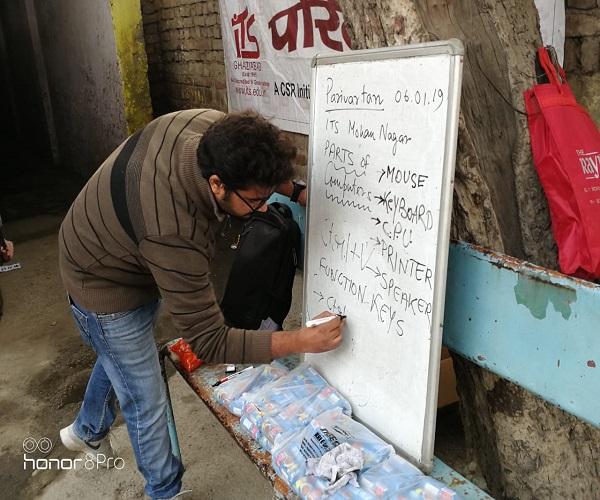 iTS परि
GHAZIABAD
www.its.edu.in
A CSR Initi
Parivartan 06.01.19
ITS Mohan Nagar
PARTS of
Computers → MOUSE
→ KEYBOARD
→ CPU
→ PRINTER
→ SPEAKER
FUNCTION-KEYS
THE
Ray
honor 8 Pro